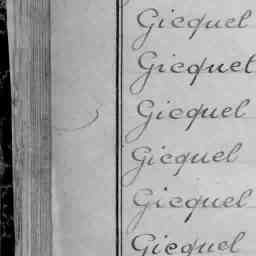 Gicquel
Gicquel
Gicquel
Gicquel
Gicquel
Gicquel